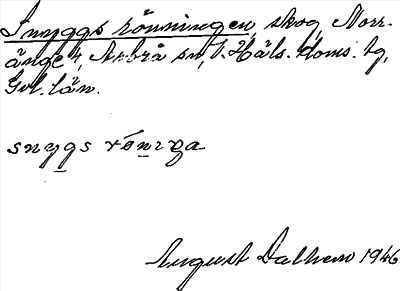 Snyggs rönningen, skog, Norr-
änge 4, Arbrå sn, V. Häls. doms. tg,
Gvl. län.
snygs rö́niŋa
August Dalhem 1946